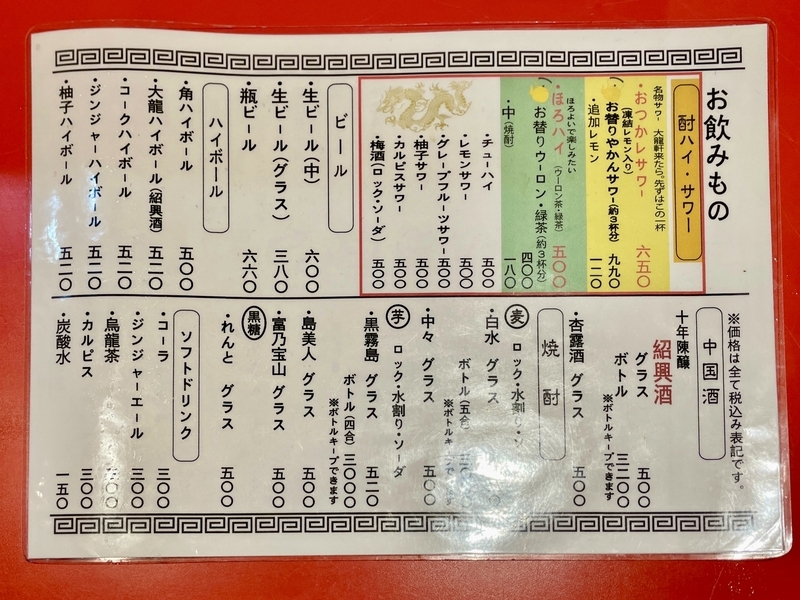 お飲みもの
酎ハイ・サワー
名物サワー 大龍軒来たら。先ずはこの一杯
・おつかレサワー 六五〇
(凍結レモン入り)
お替りやかんサワー(約3杯分) 九九〇
・追加レモン 一二〇
ほろよいで楽しみたい
・ほろハイ(ウーロン茶・緑茶) 五〇〇
お替りウーロン・緑茶(約3杯分) 四〇〇
・中(焼酎) 一八〇
・チューハイ 五〇〇
・レモンサワー 五〇〇
・グレープフルーツサワー 五〇〇
・柚子サワー 五〇〇
・カルピスサワー 五〇〇
・梅酒(ロック・ソーダ) 五〇〇
ビール
・生ビール(中) 六〇〇
・生ビール(グラス) 三八〇
・瓶ビール 六六〇
ハイボール
・角ハイボール 五〇〇
・大龍ハイボール(紹興酒) 五二〇
・コークハイボール 五二〇
・ジンジャーハイボール 五二〇
・柚子ハイボール 五二〇
※価格は全て税込み表記です。
中国酒
十年陳醸
紹興酒
グラス 五〇〇
ボトル 三二〇〇
※ボトルキープできます
・杏露酒 グラス 五〇〇
焼酎
麦 ロック・水割り・
・白水 グラス
ボトル(五合)
※ボトルキープできます
・中々 グラス 五〇〇
芋 ロック・水割り・ソーダ
・黒霧島 グラス 五二〇
ボトル(四合) 三〇〇〇
※ボトルキープできます
・島美人 グラス 五〇〇
・富乃宝山 グラス 五〇〇
黒糖
・れんと グラス 五〇〇
ソフトドリンク
・コーラ 三〇〇
・ジンジャーエール 三〇〇
・烏龍茶 三〇〇
・カルピス 三〇〇
・炭酸水 一五〇